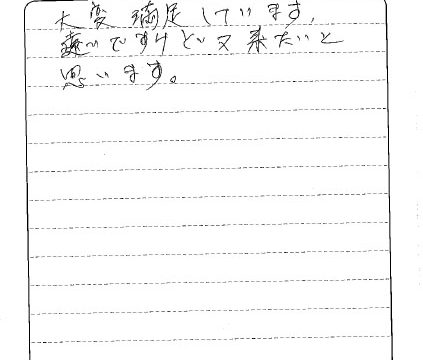 大変満足しています、
遠いですけど又来たいと
思います。